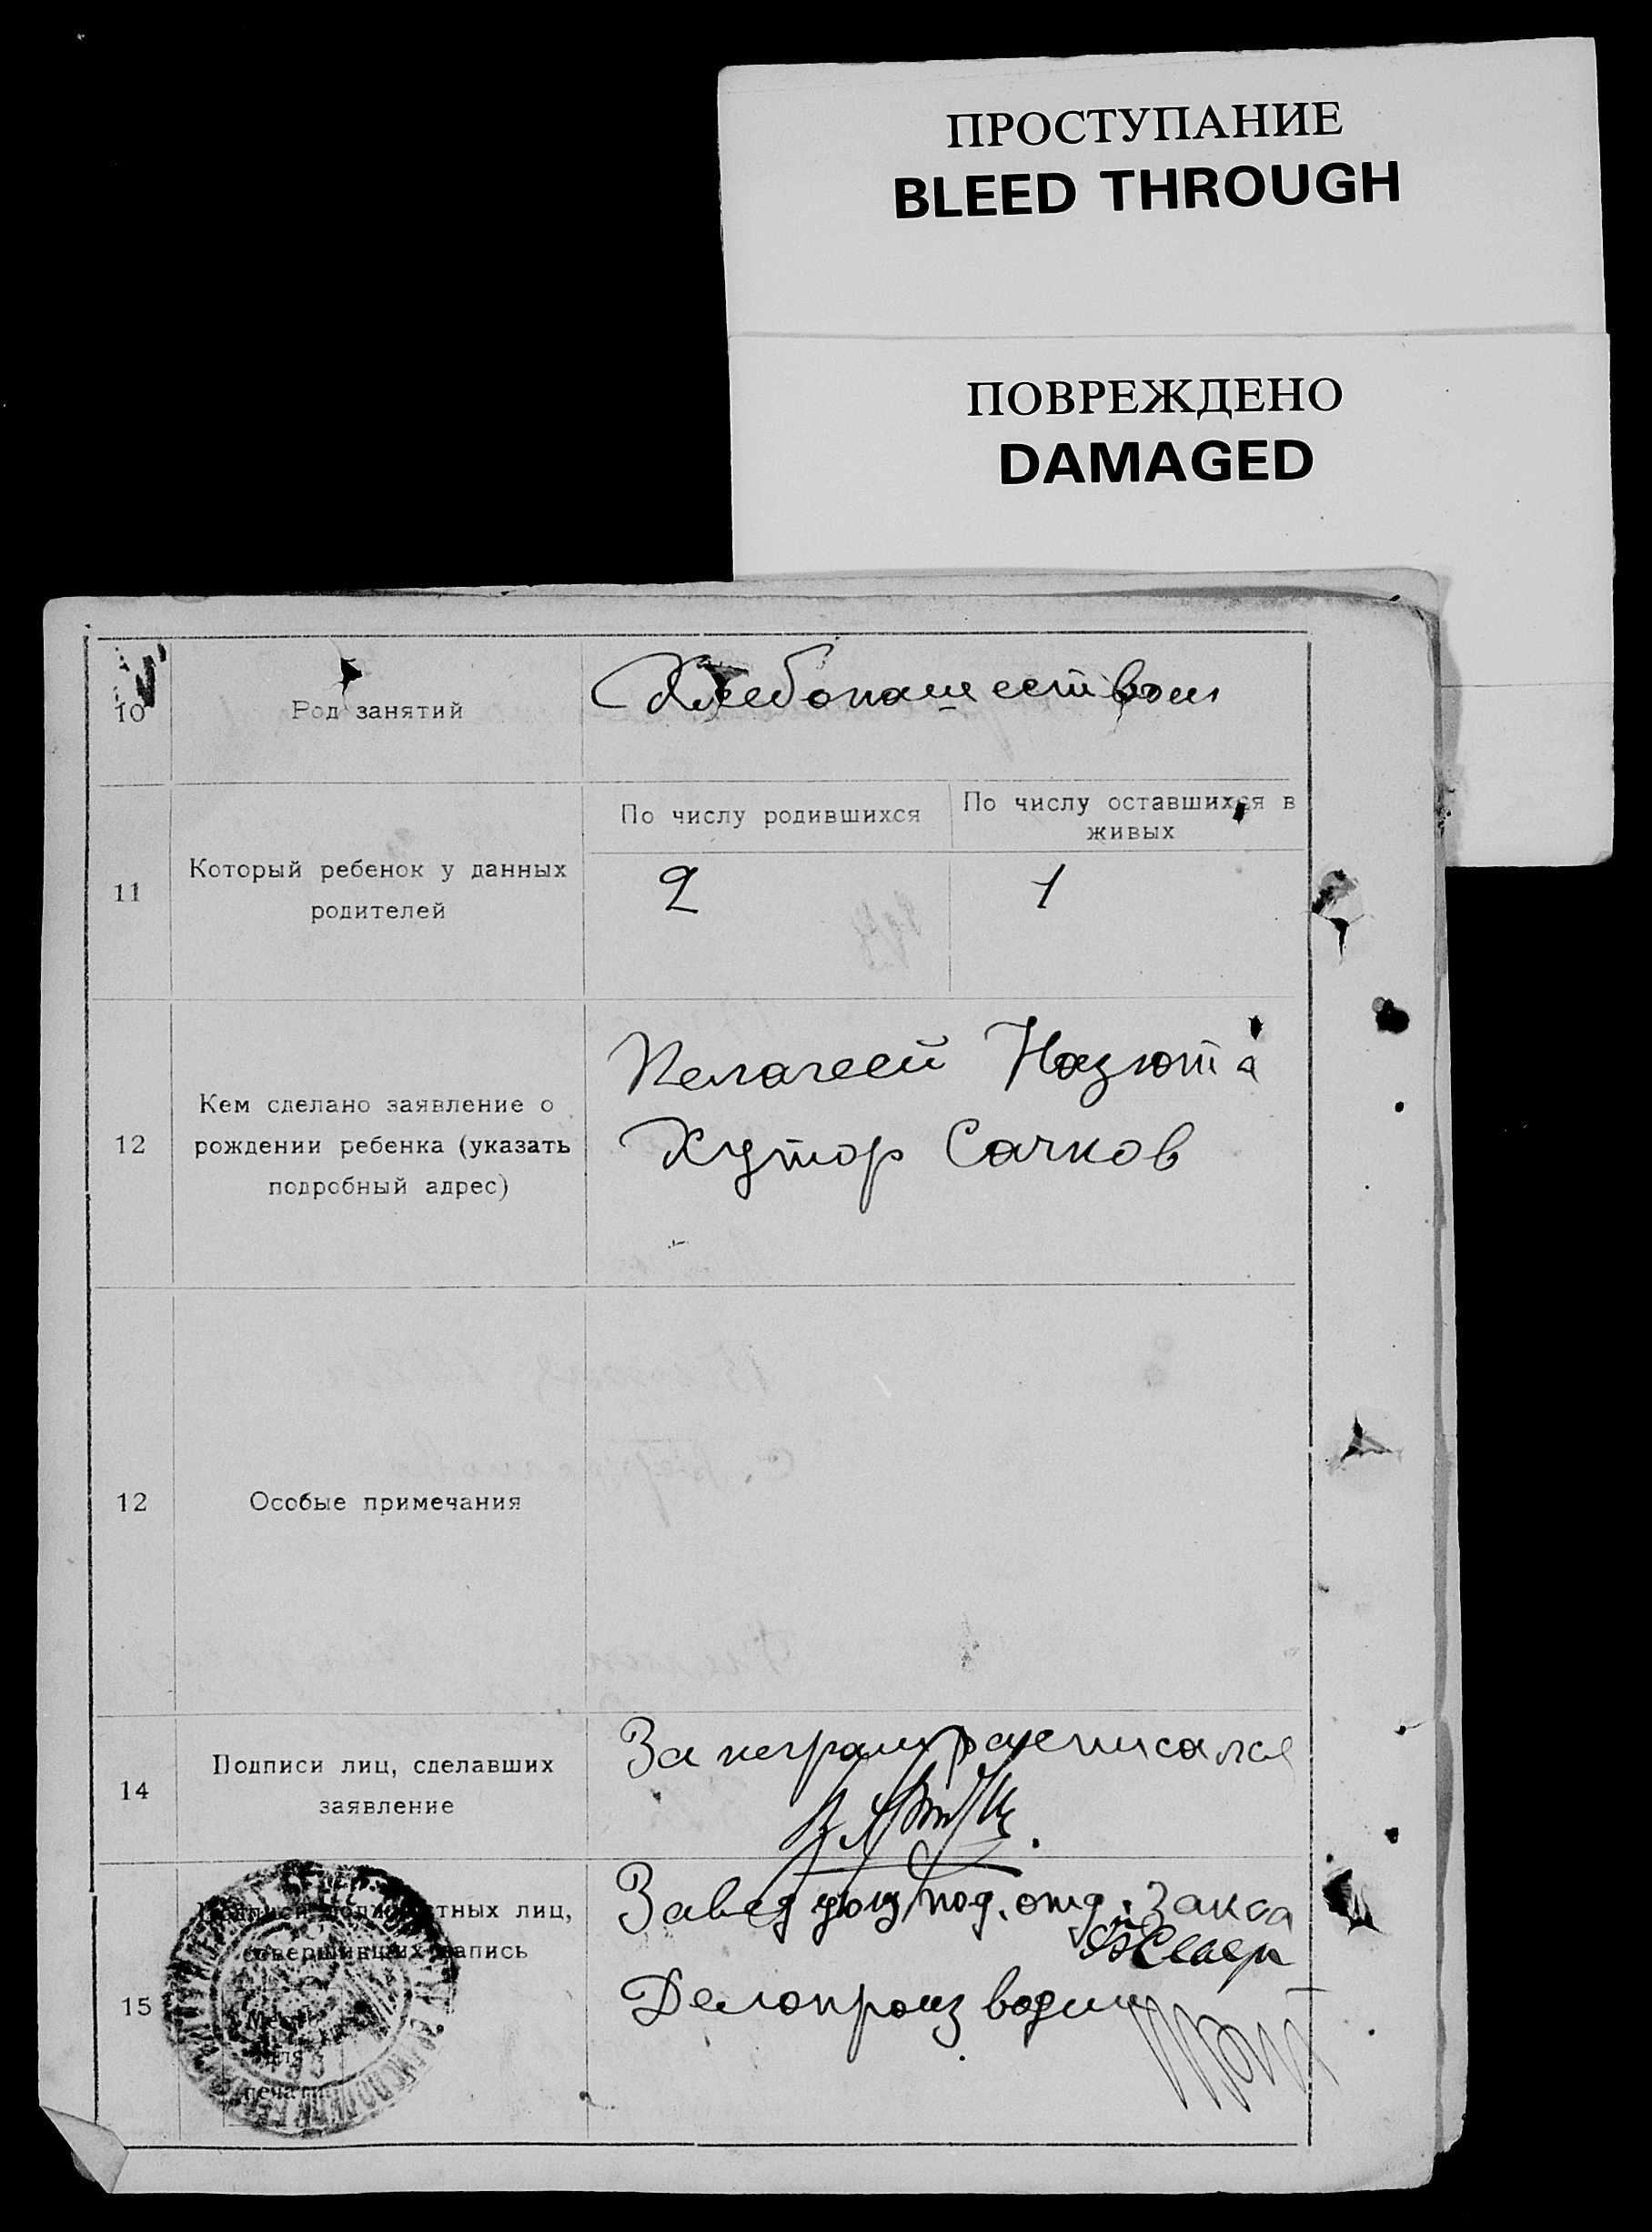 ПРОСТУПАНИЕ
BLEED THROUGH
ПОВРЕЖДЕНО
DAMAGED
10
Род занятий
Хлебопашеством
11
Который ребенок у данных
родителей
По числу родившихся
По числу оставшихся в
живых
2
1
12
Кем сделано заявление о
рождении ребенка (указать
подробный адрес)
Пелагеей Назюта
Хутор Сачков
12
Особые примечания
14
Подписи лиц, сделавших
заявление
За неграм расписался
15
Подписи должностных лиц,
совершивших запись
Место
для
печати
Завед под. отд. Закса
Делопроизводит